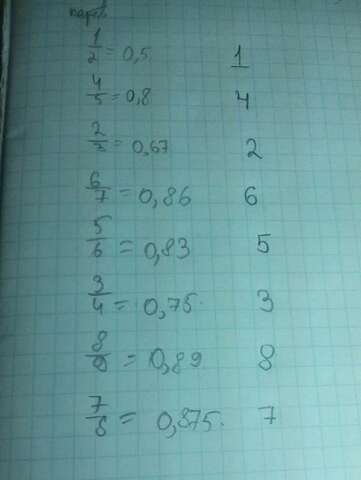 1/2 = 0,5 1
4/5 = 0,8 4
2/3 = 0,67 2
6/7 = 0,86 6
5/6 = 0,83 5
3/4 = 0,75. 3
8/9 = 0,89 8
7/8 = 0,875. 7